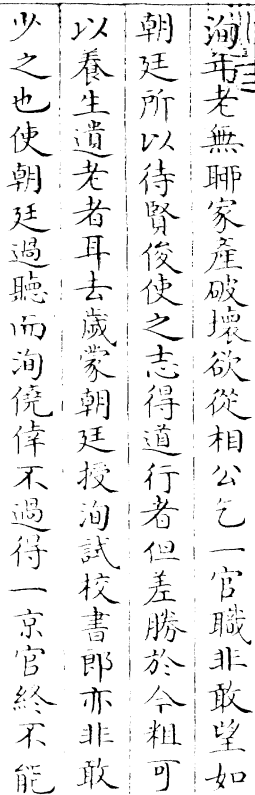 洵年老無聊家產破壞欲從相公乞一官職非敢望如
朝廷所以待賢俊使之志得道行者但差勝於今粗可
以養生遺老者耳去歲蒙朝廷授洵試校書郎亦非敢
少之也使朝廷過聽而洵僥倖不過得一京官終不能